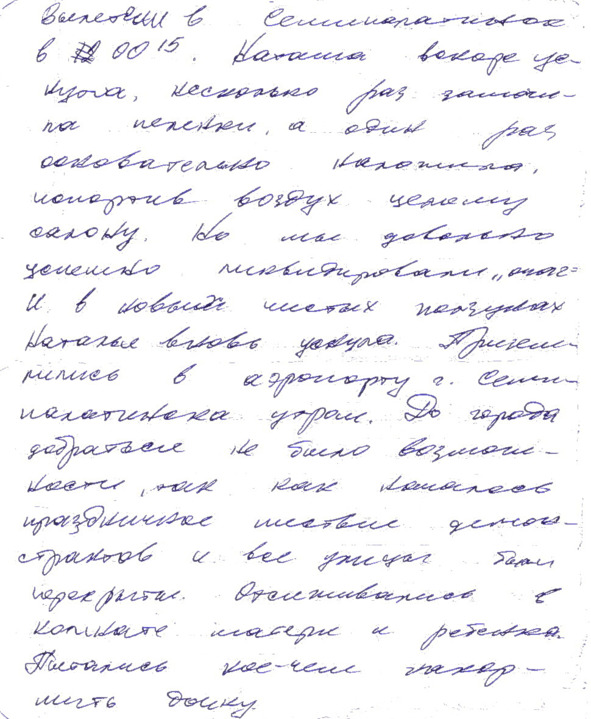 Вылетели в Семипалатинск
в 00 15. Наташа вскоре ус-
нула, несколько раз замочи-
ла пеленки, а один раз
основательно наложила,
испортив воздух целому
салону. Но мы довольно
успешно ликвидировали „очаг"
и в новый чистых ползунках
Наталья вновь уснула. Призем-
лились в аэропорту г. Семи-
палатинска утром. До города
добраться не было возмож-
ности, так как началось
праздничное шествие демон-
странтов и все улицы были
перекрыты. Отсиживались в
комнате матери и ребенка.
Пытались кое-чем накор-
мить дочку.